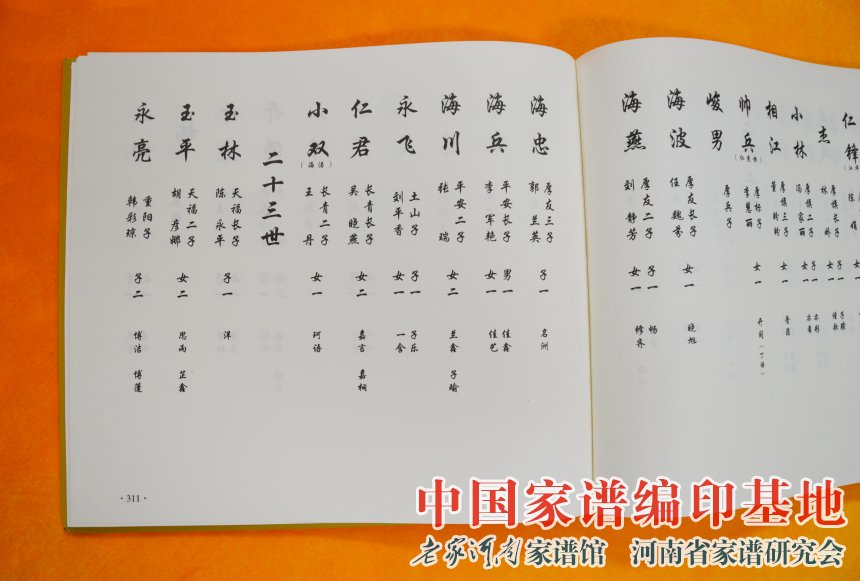 仁锋
小林
杰
相江
董盼盼
女一
帅兵
厚栋子
李慧丽
女一
峻男
厚兵子
海波
厚友长子
任魏芬
女一
晓旭
海燕
厚友二子
刘静芳
子一
女一
畅
修齐
海忠
厚友三子
郭兰英
子一
名洲
海兵
平安长子
李军艳
男一
女一
佳鑫
佳艺
海川
平安二子
张瑞
女二
兰鑫 子瑜
永飞
土山子
刘平香
子一
女一
子乐
一含
仁君
长青长子
吴晓燕
女二
嘉言 嘉桐
小双
长青二子
王丹
女一
珂语
二十三世
玉林
天福长子
陈永平
子一
洋
玉平
天福二子
胡彦娜
女二
思雨 芷鑫
永亮
重阳子
韩彩琼
子二
博洁 博蓬
·311·
中国家谱编印基地
老家河南家谱馆 河南省家谱研究会